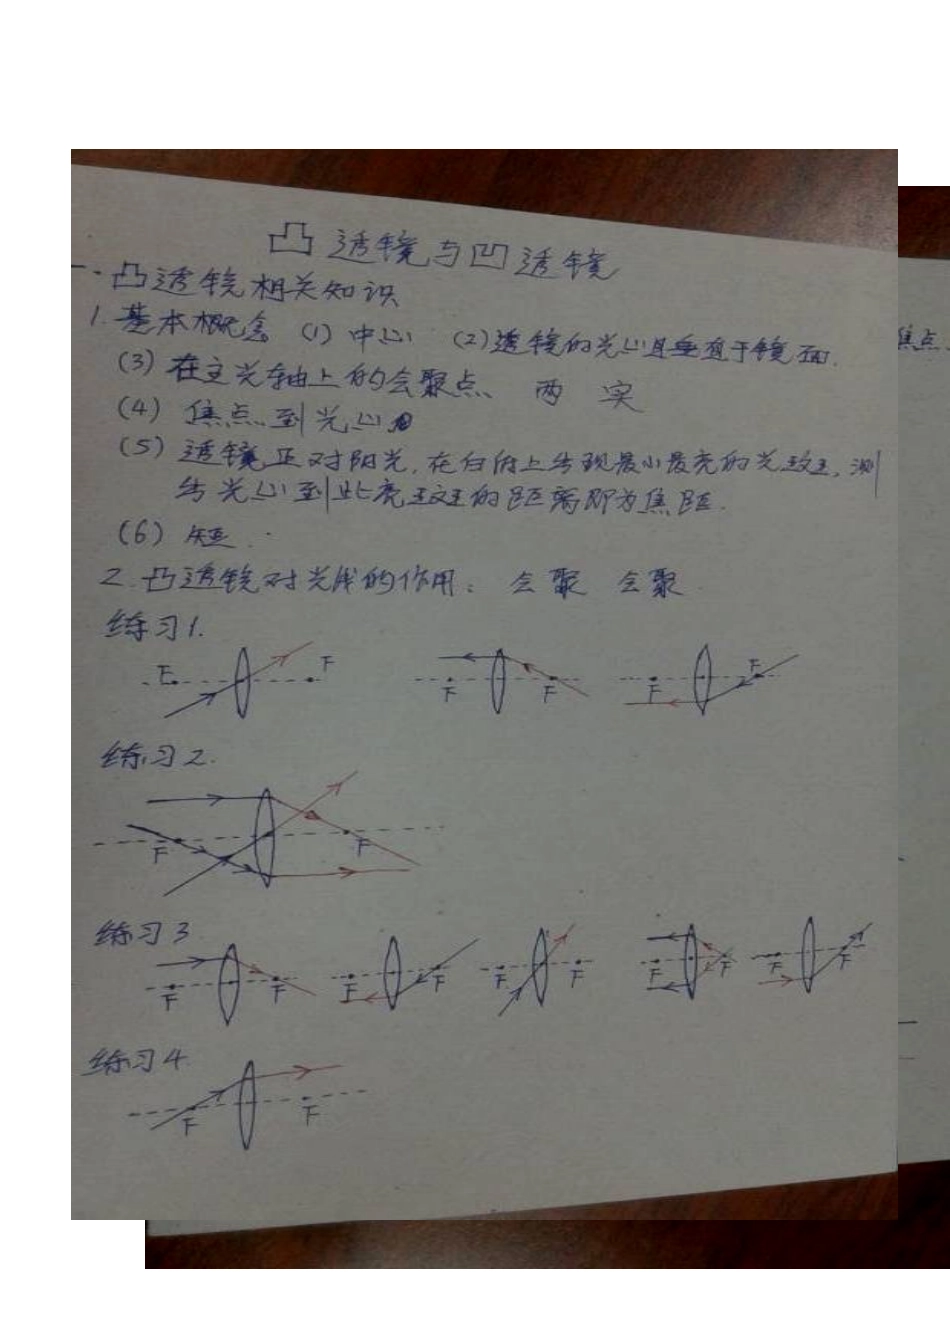 凸透镜与凹透镜
一. 凸透镜相关知识
1. 基本概念 (1) 中心 (2) 透镜的光心且垂直于镜面.
焦点.
(3) 在主光轴上的会聚点 两 实
(4) 焦点到光心
(5) 透镜正对阳光, 在白纸上出现最小最亮的光斑, 测
出光心到此亮斑的距离即为焦距.
(6) 短.
2. 凸透镜对光线的作用: 会聚 会聚
练习1.
F F F F F F
练习2.
F F
练习3
F F F F F F F F F F
练习4.
F F